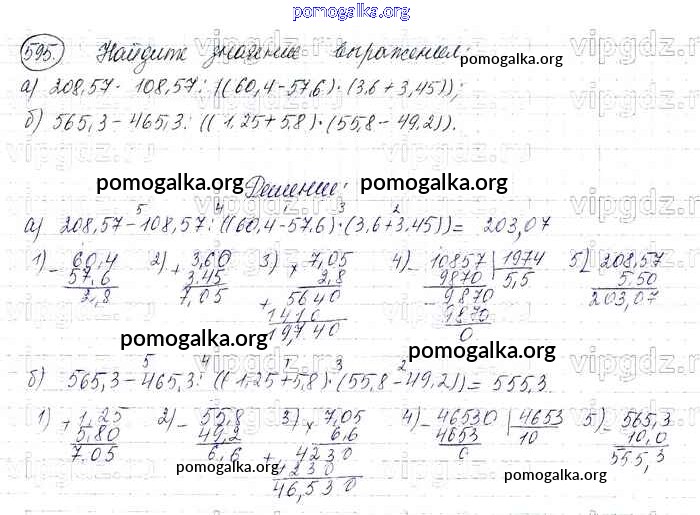 pomogalka.org
595. Найдите значение выражения:
а) 208,57 - 108,57 : ((60,4-57,6)·(3,6+3,45));
б) 565,3 - 465,3 : ((1,25+5,8)·(55,8-49,2)).
pomogalka.org Решение: pomogalka.org
5 4 1 3 2
а) 208,57-108,57 : ((60,4-57,6)·(3,6+3,45)) = 203,07
1) - 60,4 2) + 3,60 3) × 7,05 4) - 10857 | 1974 5) - 208,57
57,6 3,45 2,8 9870 5,5 5,50
2,8 7,05 + 5640 - 9870 203,07
1410 9870
19,740 0
pomogalka.org pomogalka.org
5 4 1 3 2
б) 565,3-465,3 : ((1,25+5,8)·(55,8-49,2)) = 555,3
1) + 1,25 2) - 55,8 3) × 7,05 4) - 46530 | 4653 5) - 565,3
5,80 49,2 6,6 4653 10 10,0
7,05 6,6 + 4230 0 555,3
pomogalka.org 4230 pomogalka.org
46,530
vipgdz.ru